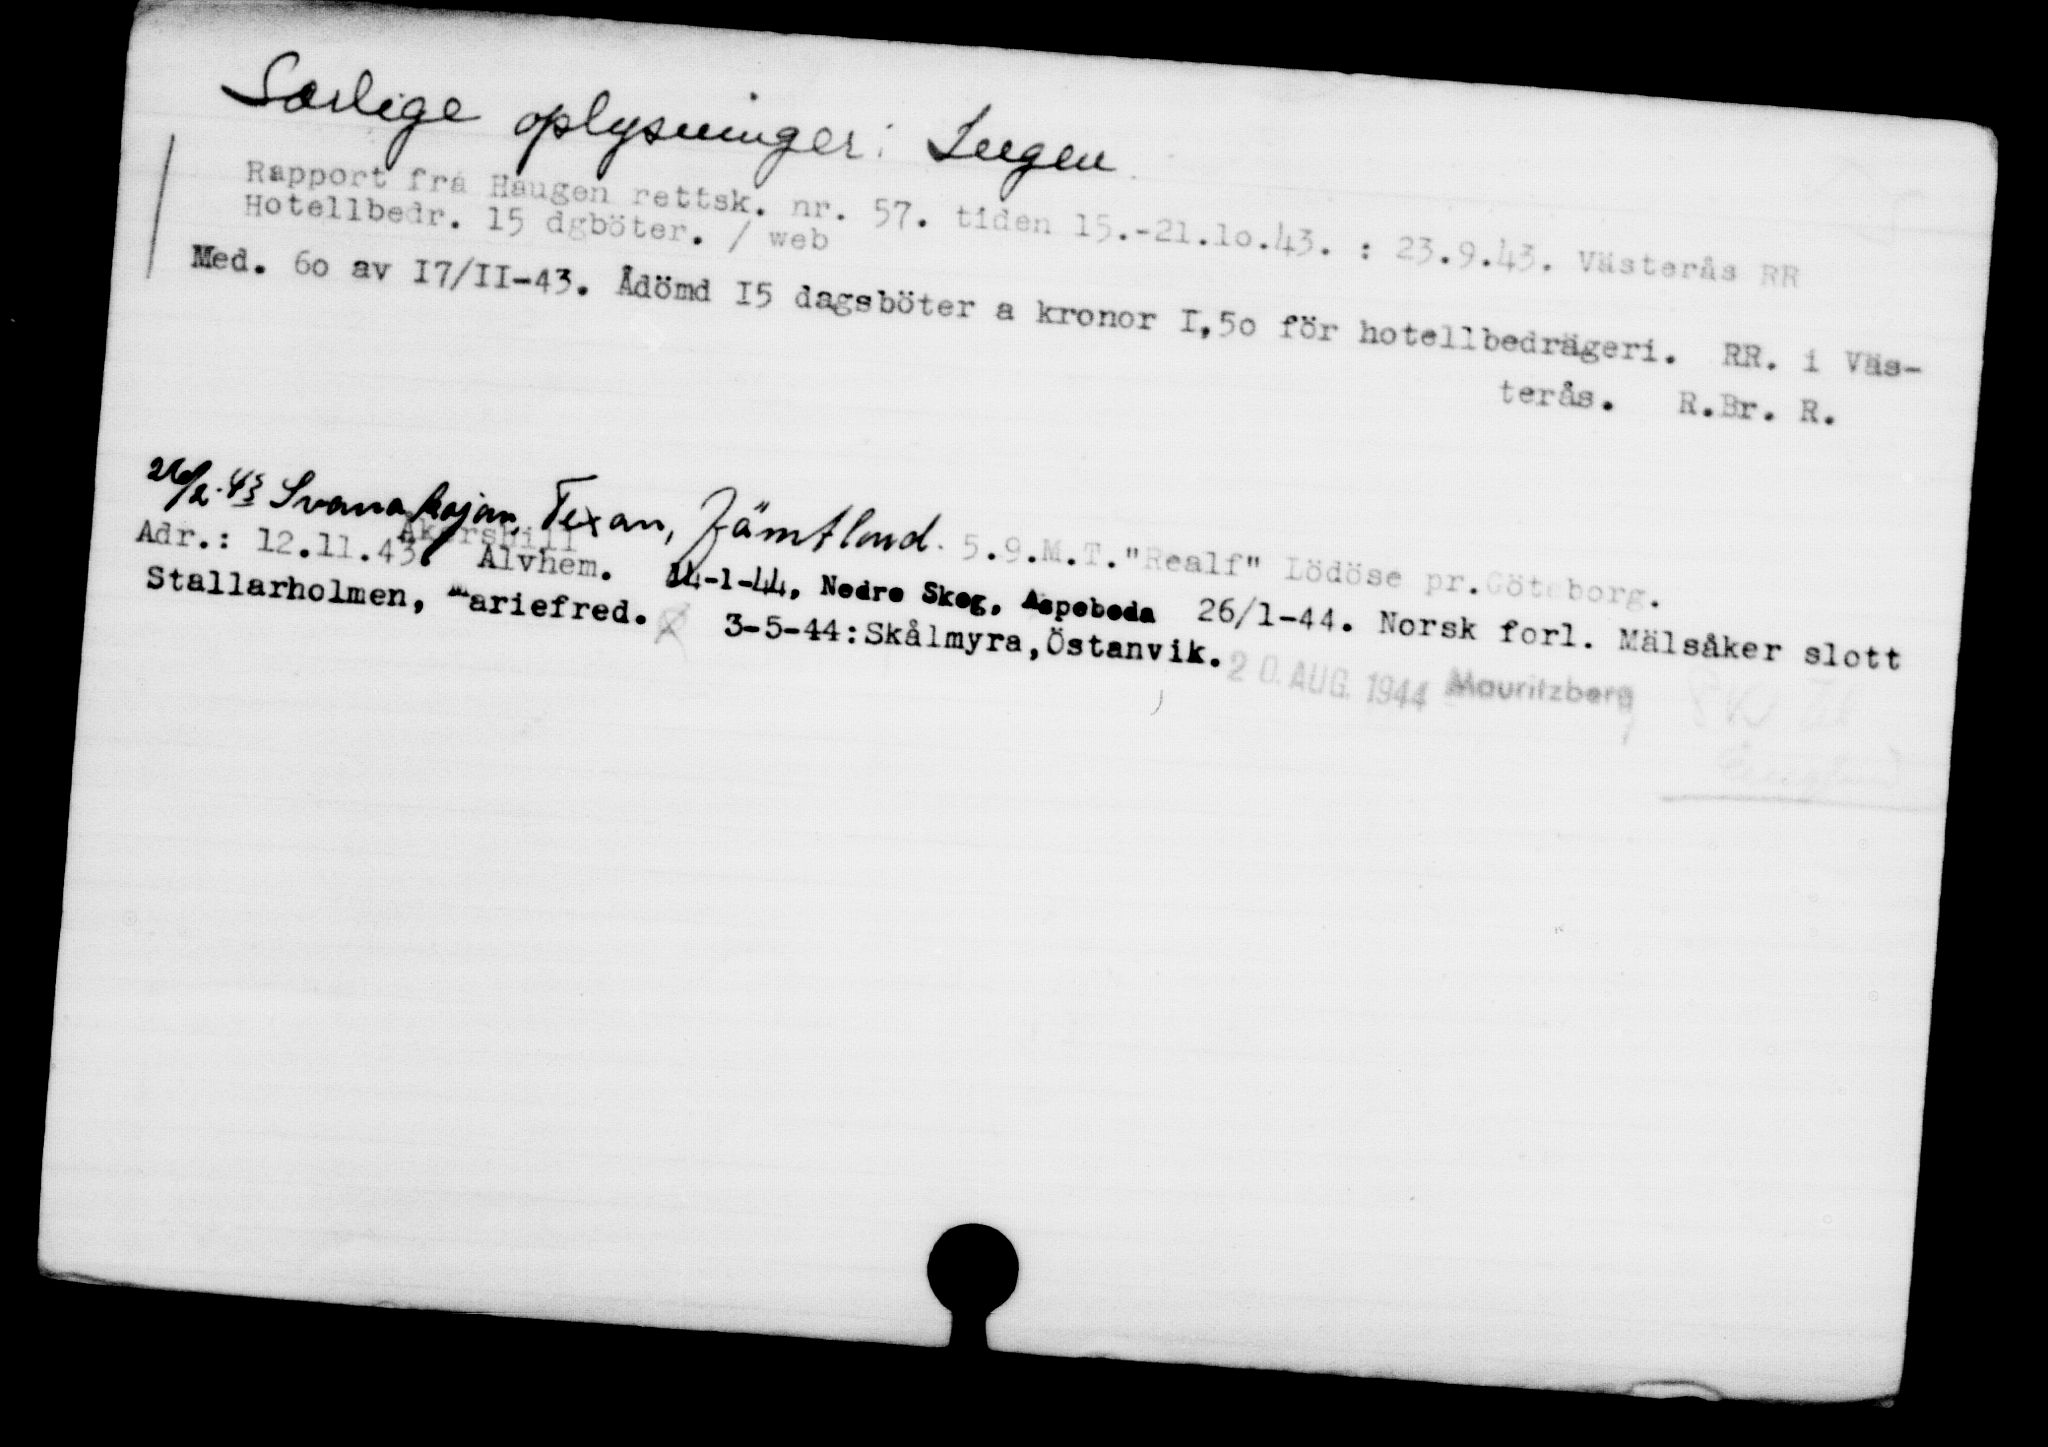 Særlige oplysninger: Ingen.
Rapport frå Haugen rettsk. nr. 57. tiden 15.-21.1o.43. : 23.9.43. Västerås RR
Hotellbedr. 15 dgböter. / web
Med. 6o av I7/II-43. Ådömd I5 dagsböter a kronor I,5o för hotellbedrägeri. RR. i Väs-
terås. R.Br. R.
26/2.43 Svanakojan, Texan, Jämtland. 5.9.M.T."Realf" Lödöse pr.Göteborg.
Adr.: 12.11.43. Alvhem. 14-1-44, Nedre Skog, Aspeboda 26/1-44. Norsk forl. Mälsåker slott
Stallarholmen, Mariefred. 3-5-44:Skålmyra,Östanvik. 20. AUG. 1944 Mauritzberg